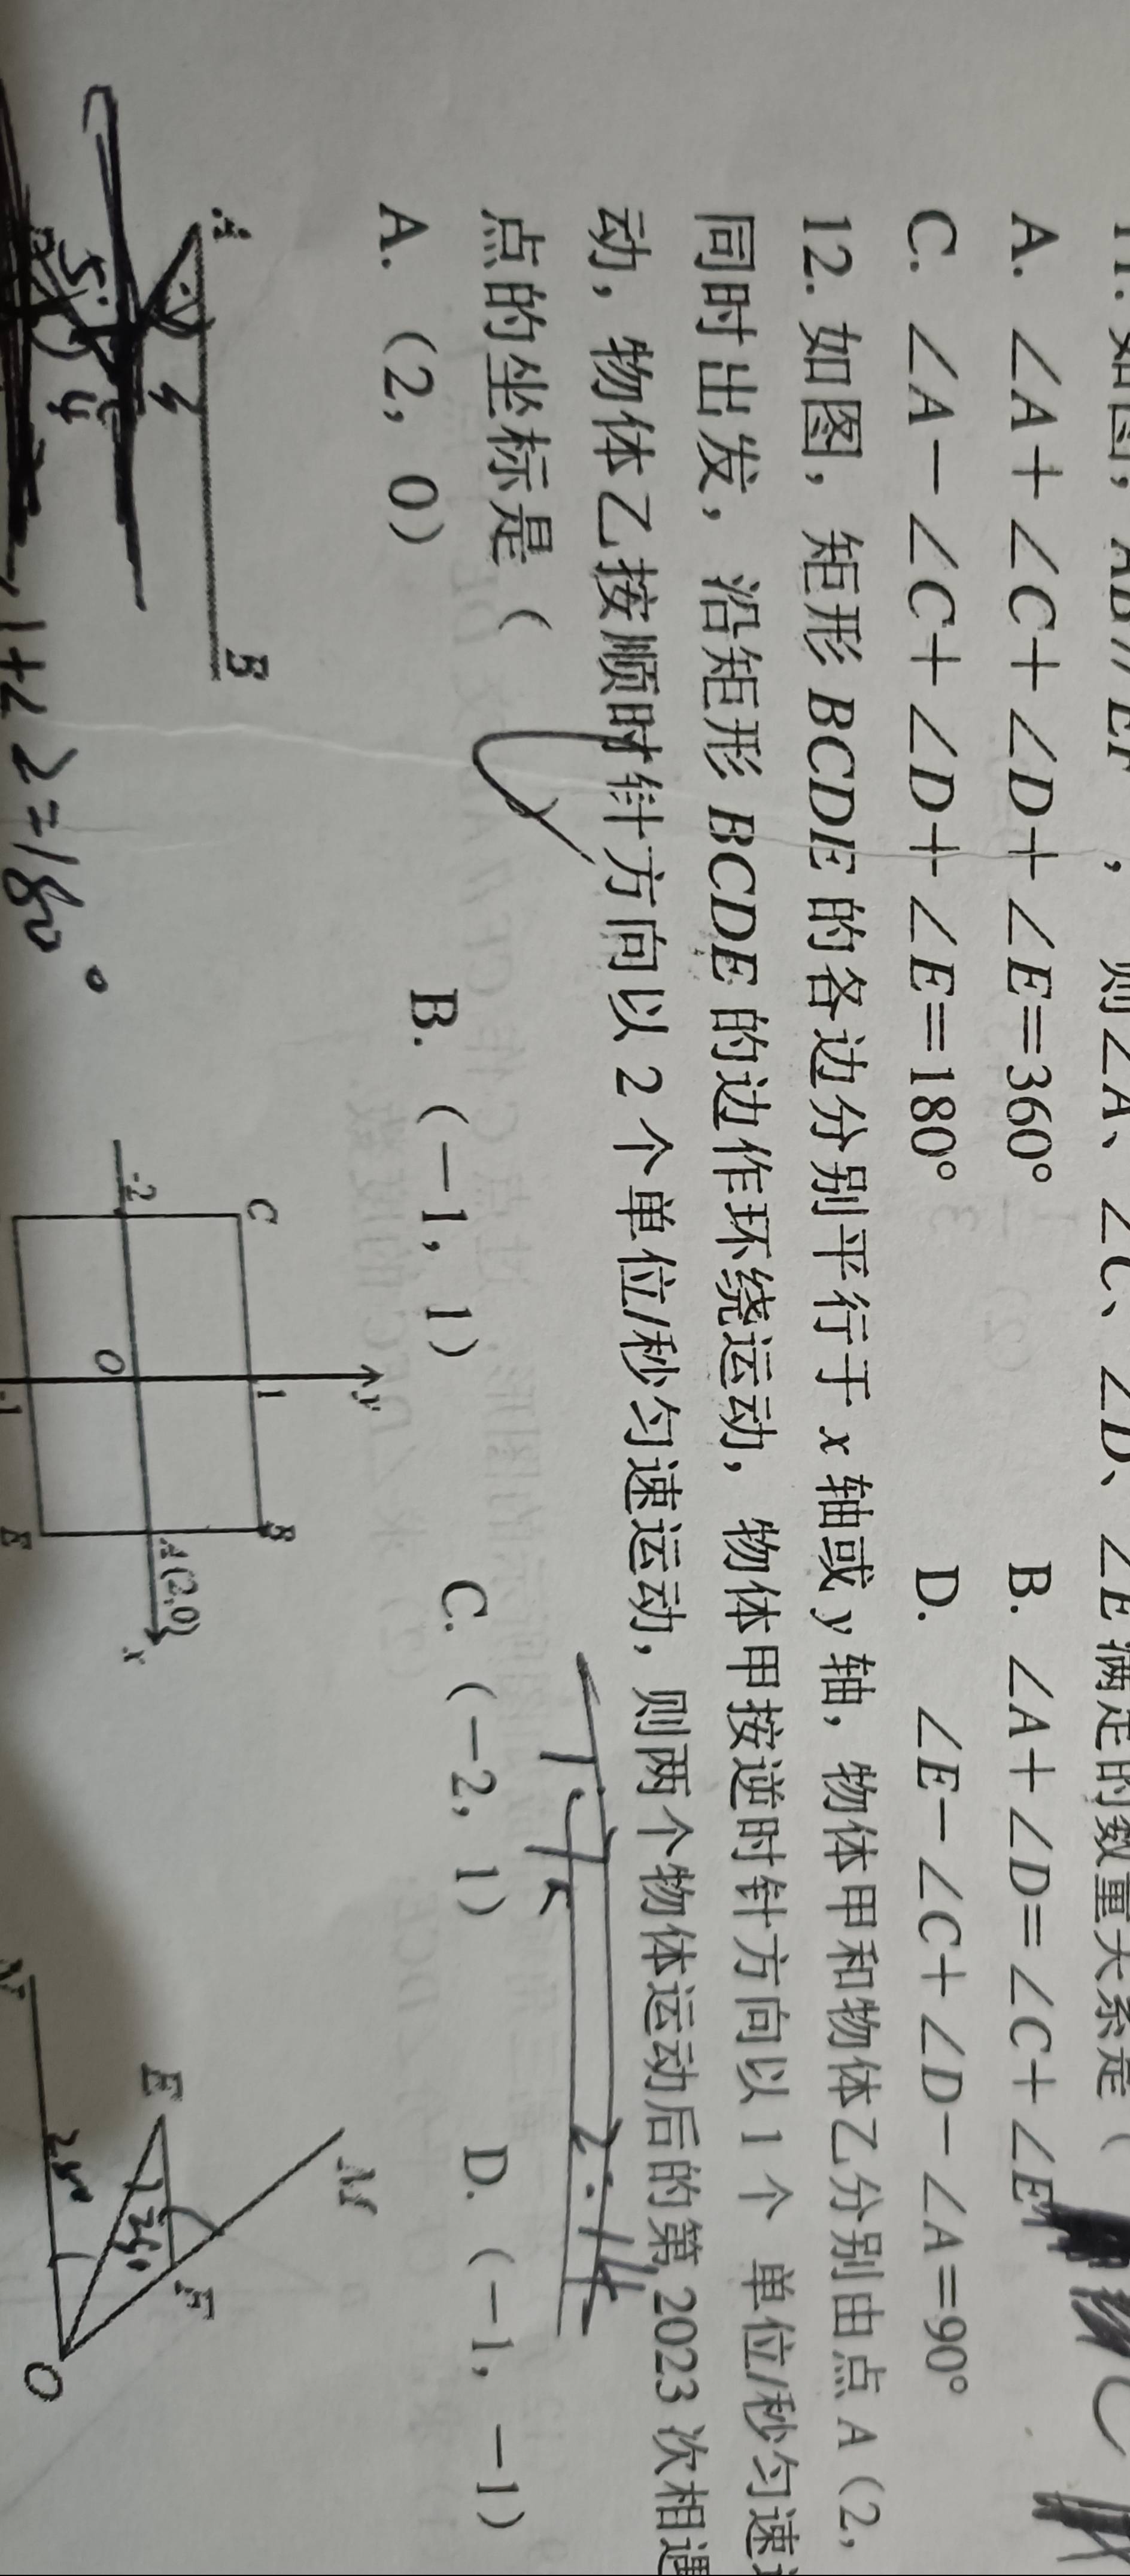 11. 如图，AB∥EF，则∠A、∠C、∠D、∠E满足的数量关系是（
A. ∠A＋∠C＋∠D＋∠E＝360°    B. ∠A＋∠D＝∠C＋∠E
C. ∠A－∠C＋∠D＋∠E＝180°    D. ∠E－∠C＋∠D－∠A＝90°
12. 如图，矩形 BCDE 的各边分别平行于 x 轴或 y 轴，物体甲和物体乙分别由点 A（2，
同时出发，沿矩形 BCDE 的边作环绕运动，物体甲按逆时针方向以 1 个 单位/秒匀速
动，物体乙按顺时针方向以 2 个单位/秒匀速运动，则两个物体运动后的第 2023 次相遇
点的坐标是（
A.（2，0）    B.（－1，1）    C.（－2，1）    D.（－1，－1）
A B
3
5 4
C 1 B y
-2 O A(2,0) x
-1 E
M
E F
N O
1+∠2=180°